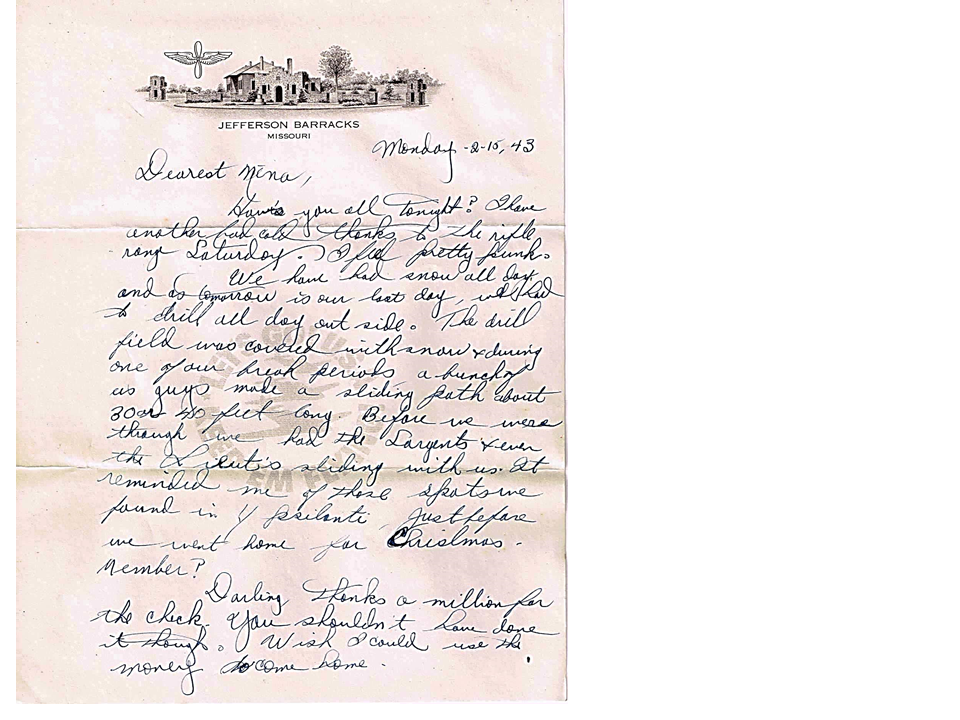 JEFFERSON BARRACKS
MISSOURI
Monday -2-15, 43
Dearest Nina,
How's you all tonight? I have
another bad cold thanks to the rifle
range Saturday. I feel pretty punk.
We have had snow all day
and as tomorrow is our last day, we had
to drill all day out side. The drill
field was covered with snow & during
one of our break periods a bunch of
us guys made a sliding path about
30 or 40 feet long. Before we were
through we had the Sargents & even
the Lieut's sliding with us. It
reminded me of those spots we
found in Ypsilanti, just before
we went home for Christmas.
Member?
Darling thanks a million for
the check. You shouldn't have done
it though. Wish I could use the
money to come home.
LET'S GO! U.S.
KEEP 'EM FLYING!